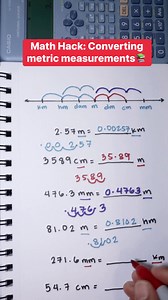 Math Hack: Converting
metric measurements
km hm dam m dm cm mm
2.57 m = 0.00257 km
3589 cm = 35.89 m
35.89
476.3 mm = 0.4763 m
4763
81.02 m = 0.8102 hm
8102
271.6 mm = km
54.7 cm =